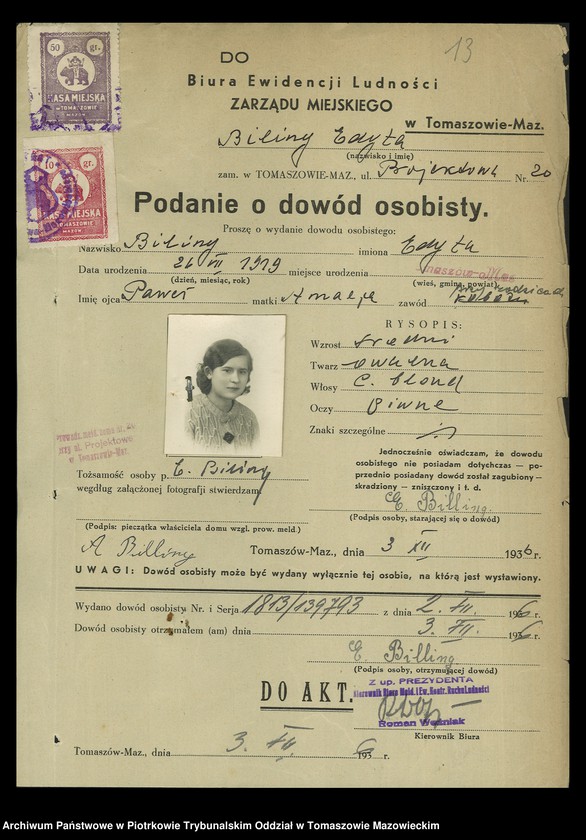 13
50 gr.
KASA MIEJSKA
W TOMASZOWIE
MAZOW.
10 gr.
KASA MIEJSKA
W TOMASZOWIE
MAZOW.
DO
Biura Ewidencji Ludności
ZARZĄDU MIEJSKIEGO
w Tomaszowie-Maz.
Biliny Edyta
(nazwisko i imię)
zam. w TOMASZOWIE-MAZ., ul. Nr. 20
Podanie o dowód osobisty.
Proszę o wydanie dowodu osobistego:
Nazwisko Biliny imiona Edyta
Data urodzenia 26 VII 1919 miejsce urodzenia
(dzień, miesiąc, rok) (wieś, gmina, powiat)
Imię ojca Paweł matki Amalja zawód przy rodzicach
RYSOPIS:
Wzrost średni
Twarz owalna
Włosy c. blond
Oczy piwne
Znaki szczególne
ul. Projektowa
w Tomaszowie-Maz.
Tożsamość osoby p. E. Biliny
według załączonej fotografii stwierdzam,
Jednocześnie oświadczam, że dowodu
osobistego nie posiadam dotychczas — po-
przednio posiadany dowód został zagubiony —
skradziony — zniszczony i t. d.
E. Billing.
(Podpis osoby, starającej się o dowód)
(Podpis: pieczątka właściciela domu wzgl. prow. meld.)
A Billing
Tomaszów-Maz., dnia 3 XII 1936 r.
UWAGI: Dowód osobisty może być wydany wyłącznie tej osobie, na którą jest wystawiony.
Wydano dowód osobisty Nr. i Serja 1813/139793 z dnia 2. XII. 1936 r.
Dowód osobisty otrzymałem (am) dnia 3. XII. 1936 r.
E. Billing
(Podpis osoby, otrzymującej dowód)
DO AKT.
Z up. PREZYDENTA
Kierownik Biura Meld. i Ew. Kontr. Ruchu Ludności
Roman Woźniak
Kierownik Biura
Tomaszów-Maz., dnia 3. XII. 1936 r.
Archiwum Państwowe w Piotrkowie Trybunalskim Oddział w Tomaszowie Mazowieckim